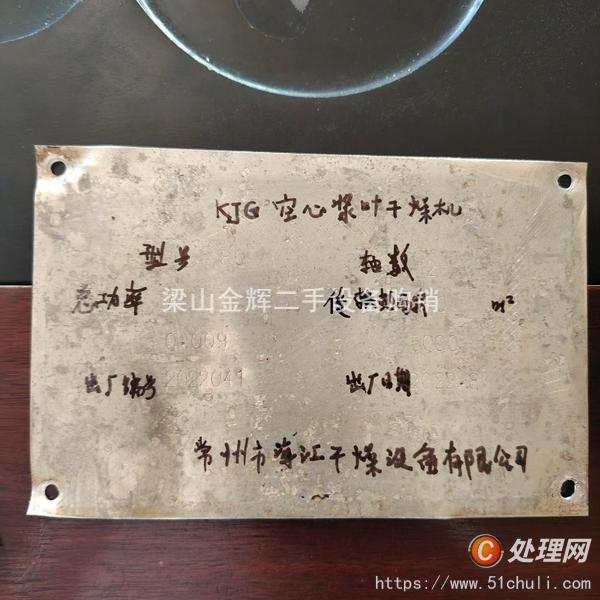 KJG 空心浆叶干燥机
型号 轴数
总功率 m²
梁山金辉二手设备购销
出厂编号 2022041 出厂日期
常州市海江干燥设备有限公司
处理网
https://www.51chuli.com/